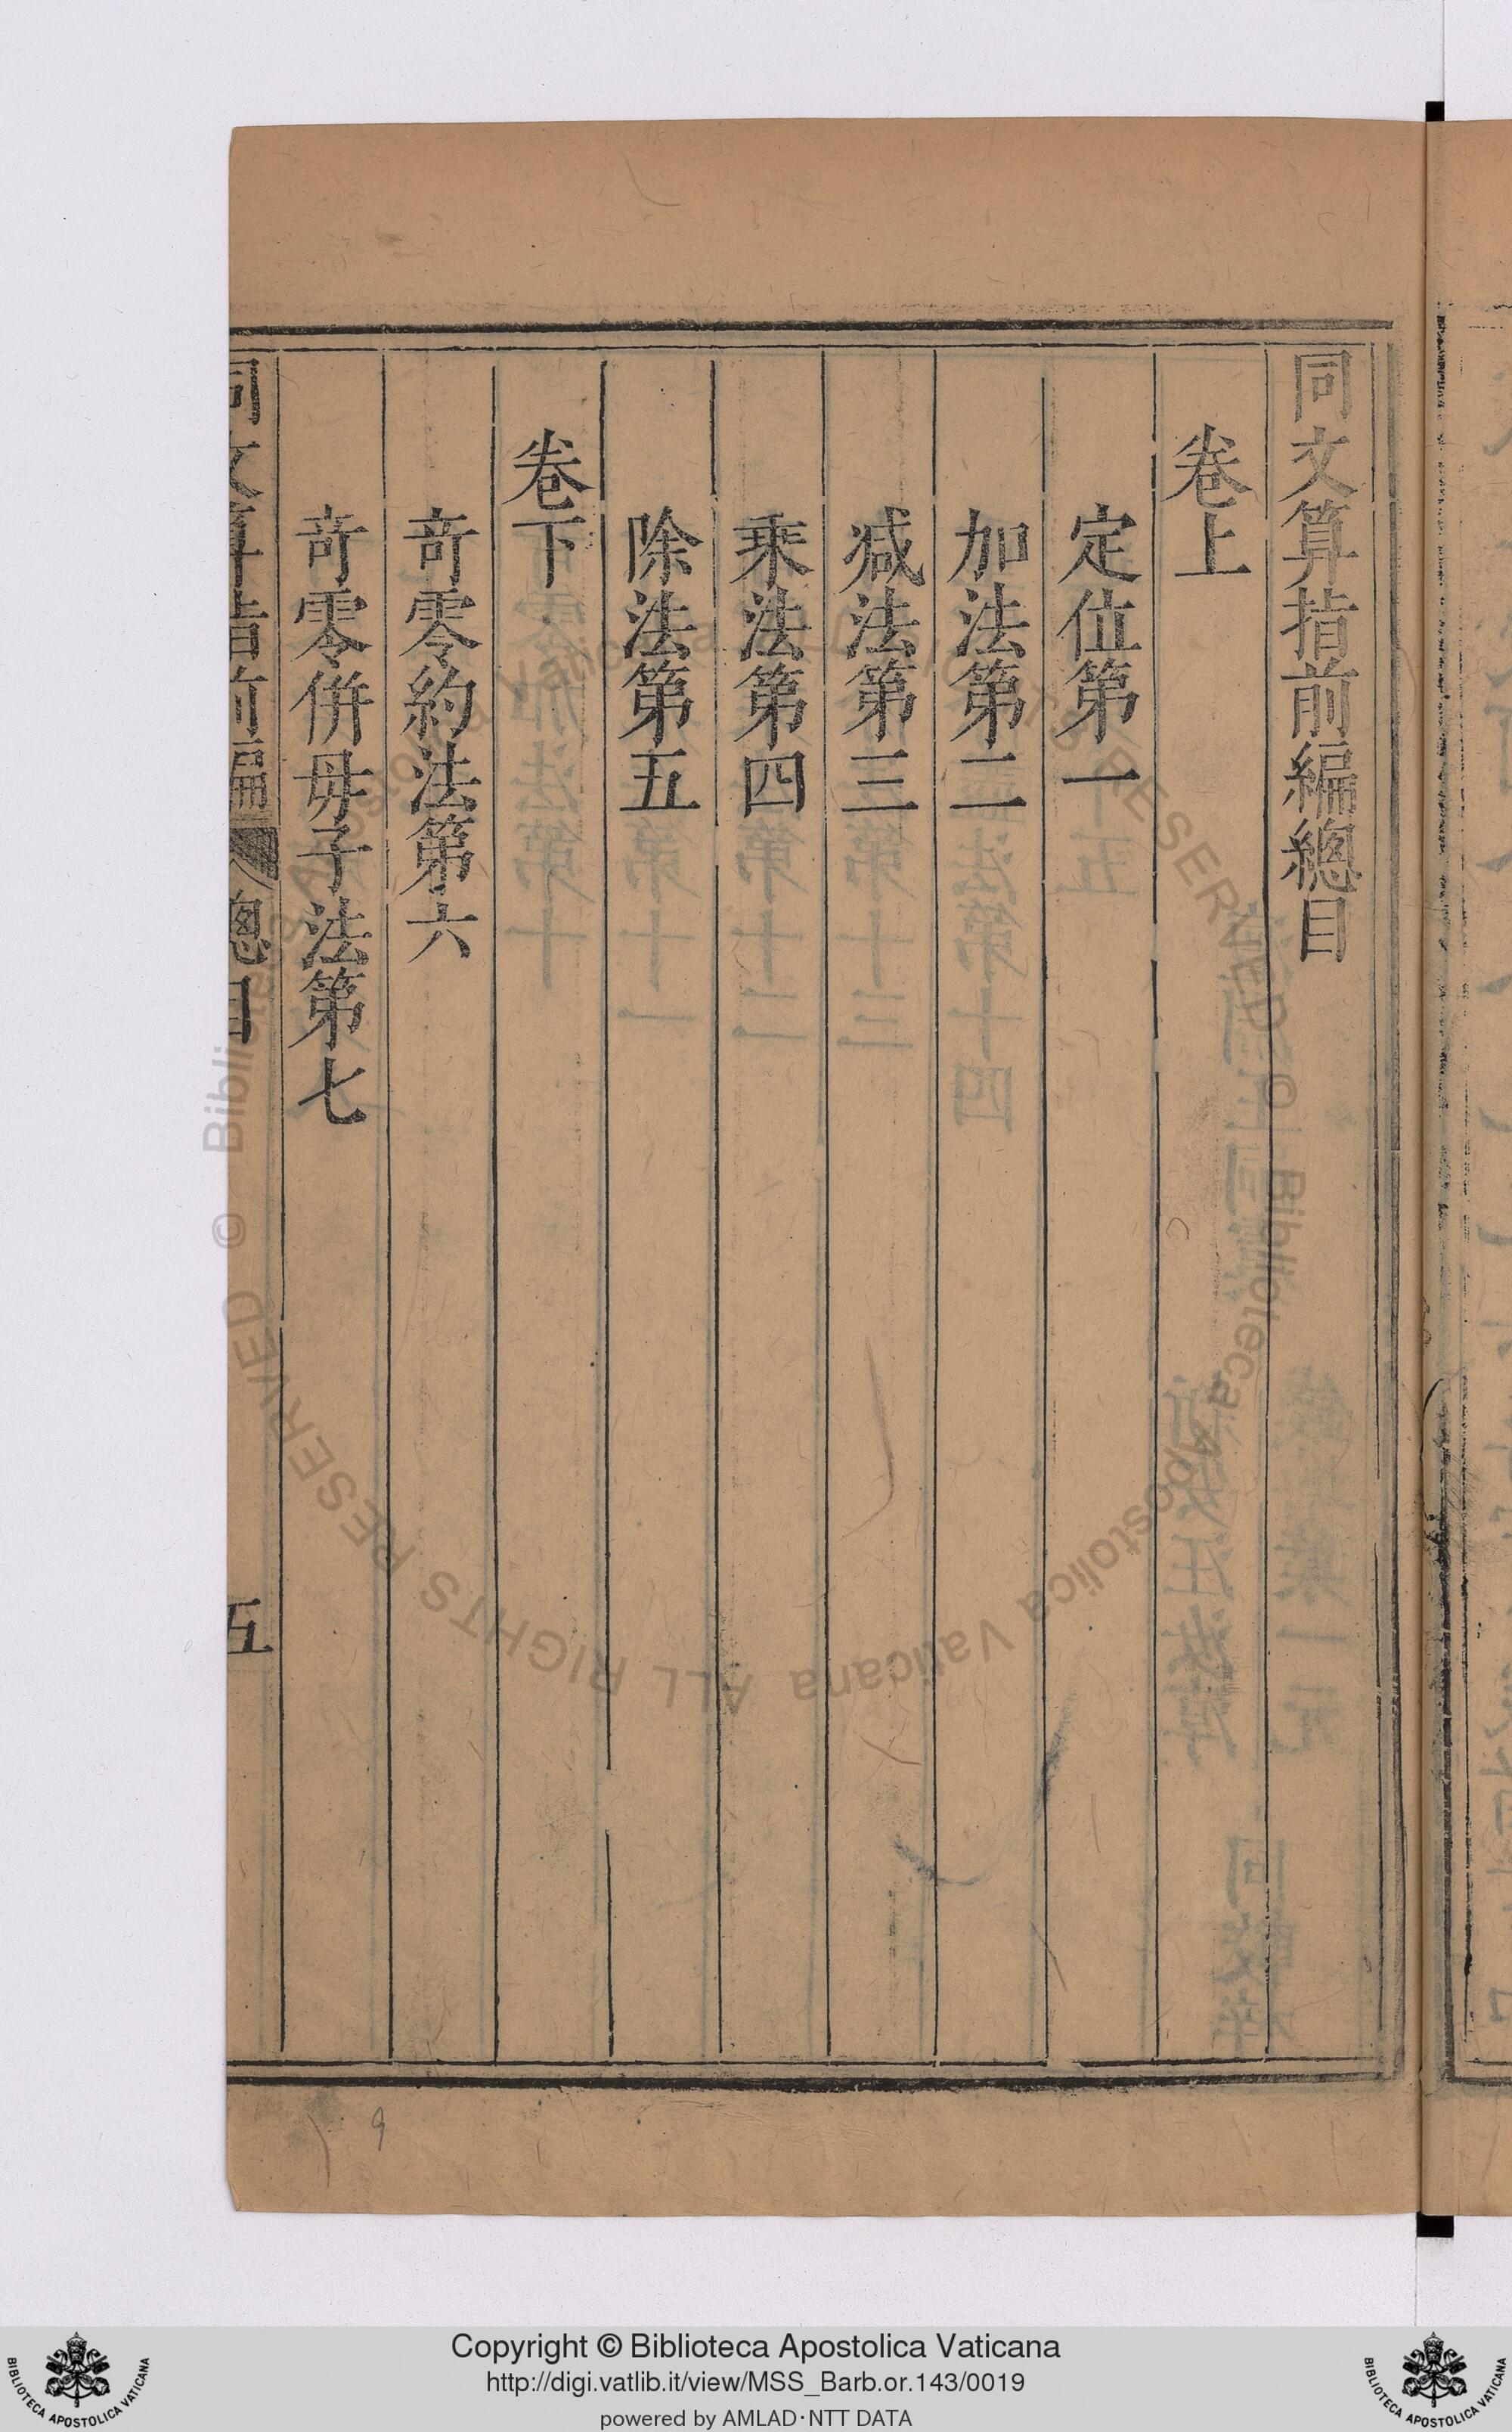 同文算指前編總目
卷上
定位第一
加法第二
减法第三
乘法第四
除法第五
卷下
竒零約法第六
竒零併母子法第七
同文算指前編 總目 五
9
© Biblioteca Apostolica Vaticana ALL RIGHTS RESERVED
Copyright © Biblioteca Apostolica Vaticana
http://digi.vatlib.it/view/MSS_Barb.or.143/0019
powered by AMLAD·NTT DATA
BIBLIOTECA APOSTOLICA VATICANA
BIBLIOTECA APOSTOLICA VATICANA